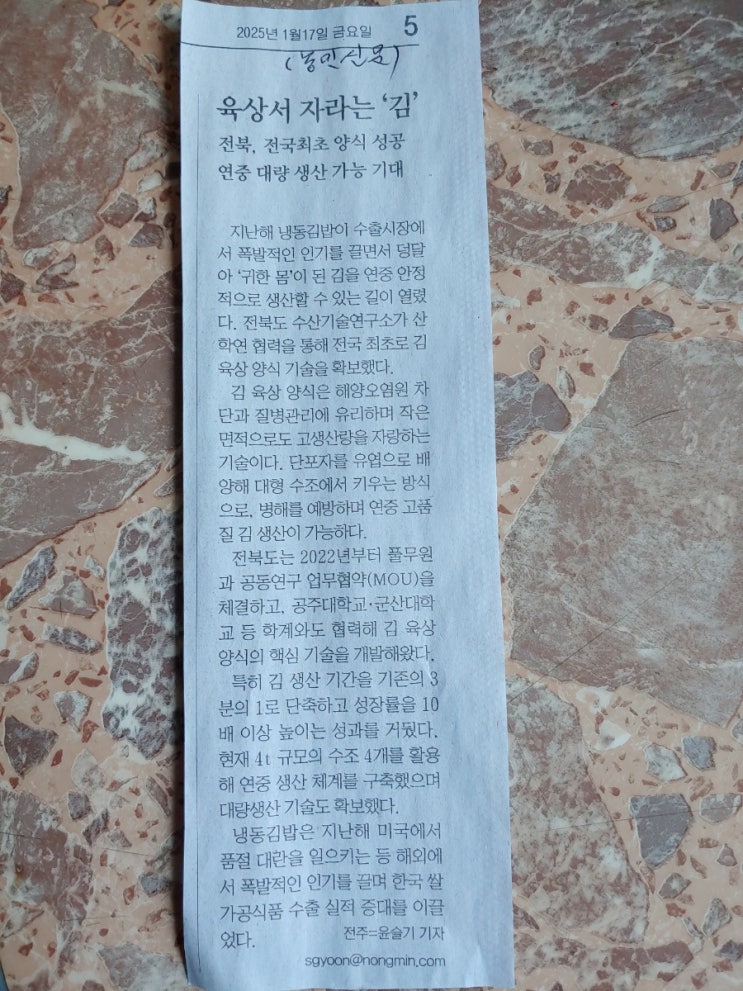 2025년 1월17일 금요일 5
(농민신문)
육상서 자라는 ‘김’
전북, 전국최초 양식 성공
연중 대량 생산 가능 기대
지난해 냉동김밥이 수출시장에
서 폭발적인 인기를 끌면서 덩달
아 ‘귀한 몸’이 된 김을 연중 안정
적으로 생산할 수 있는 길이 열렸
다. 전북도 수산기술연구소가 산
학연 협력을 통해 전국 최초로 김
육상 양식 기술을 확보했다.
김 육상 양식은 해양오염원 차
단과 질병관리에 유리하며 작은
면적으로도 고생산량을 자랑하는
기술이다. 단포자를 유엽으로 배
양해 대형 수조에서 키우는 방식
으로, 병해를 예방하며 연중 고품
질 김 생산이 가능하다.
전북도는 2022년부터 풀무원
과 공동연구 업무협약(MOU)을
체결하고, 공주대학교·군산대학
교 등 학계와도 협력해 김 육상
양식의 핵심 기술을 개발해왔다.
특히 김 생산 기간을 기존의 3
분의 1로 단축하고 성장률을 10
배 이상 높이는 성과를 거뒀다.
현재 4t 규모의 수조 4개를 활용
해 연중 생산 체계를 구축했으며
대량생산 기술도 확보했다.
냉동김밥은 지난해 미국에서
품절 대란을 일으키는 등 해외에
서 폭발적인 인기를 끌며 한국 쌀
가공식품 수출 실적 증대를 이끌
었다. 전주=윤슬기 기자
sgyoon@nongmin.com